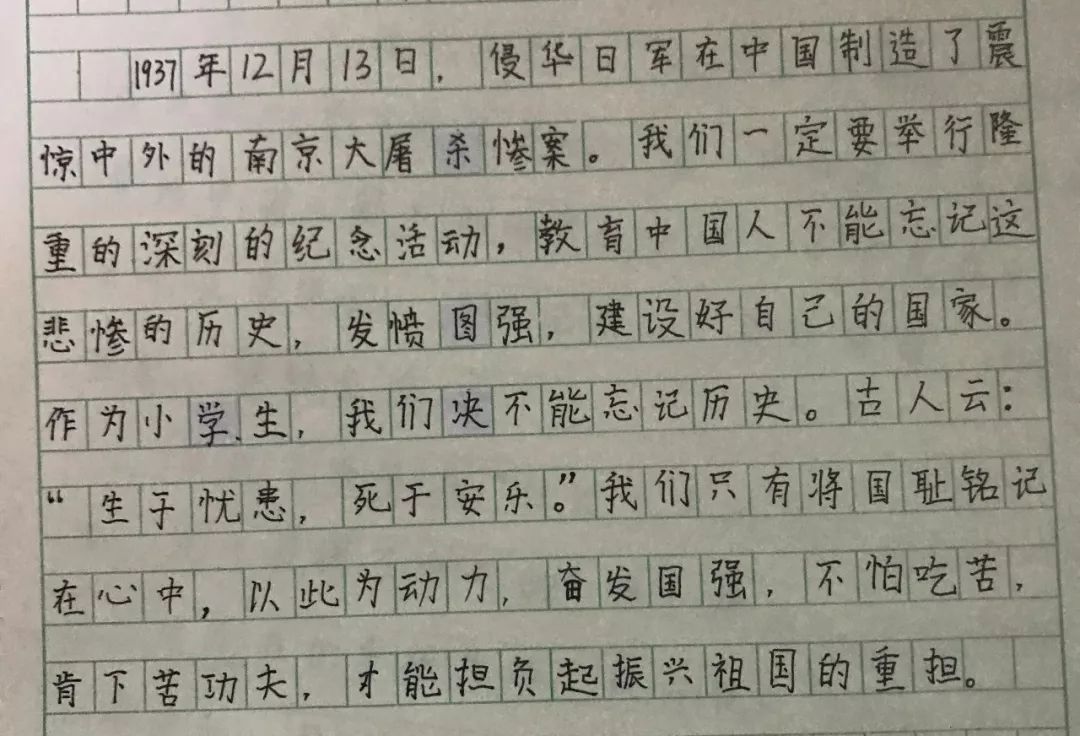 1937年12月13日，侵华日军在中国制造了震
惊中外的南京大屠杀惨案。我们一定要举行隆
重的深刻的纪念活动，教育中国人不能忘记这
悲惨的历史，发愤图强，建设好自己的国家。
作为小学生，我们决不能忘记历史。古人云：
“生于忧患，死于安乐。”我们只有将国耻铭记
在心中，以此为动力，奋发国强，不怕吃苦，
肯下苦功夫，才能担负起振兴祖国的重担。